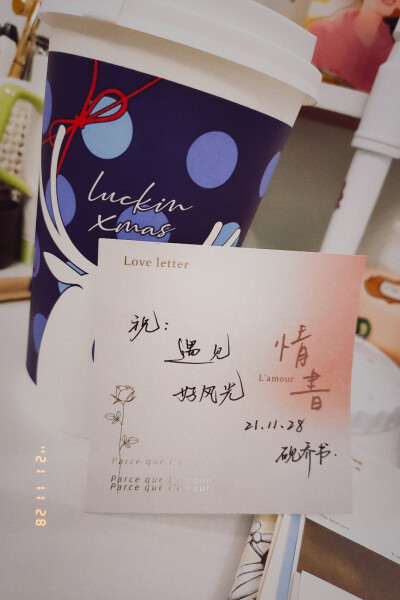 luckin
xmas
Love letter
祝：
遇见
好风光
情
书
L'amour
21.11.28
砚乔书.
Parce que l'amour
Parce que l'amour
Parce que l'amour
'21 11 28